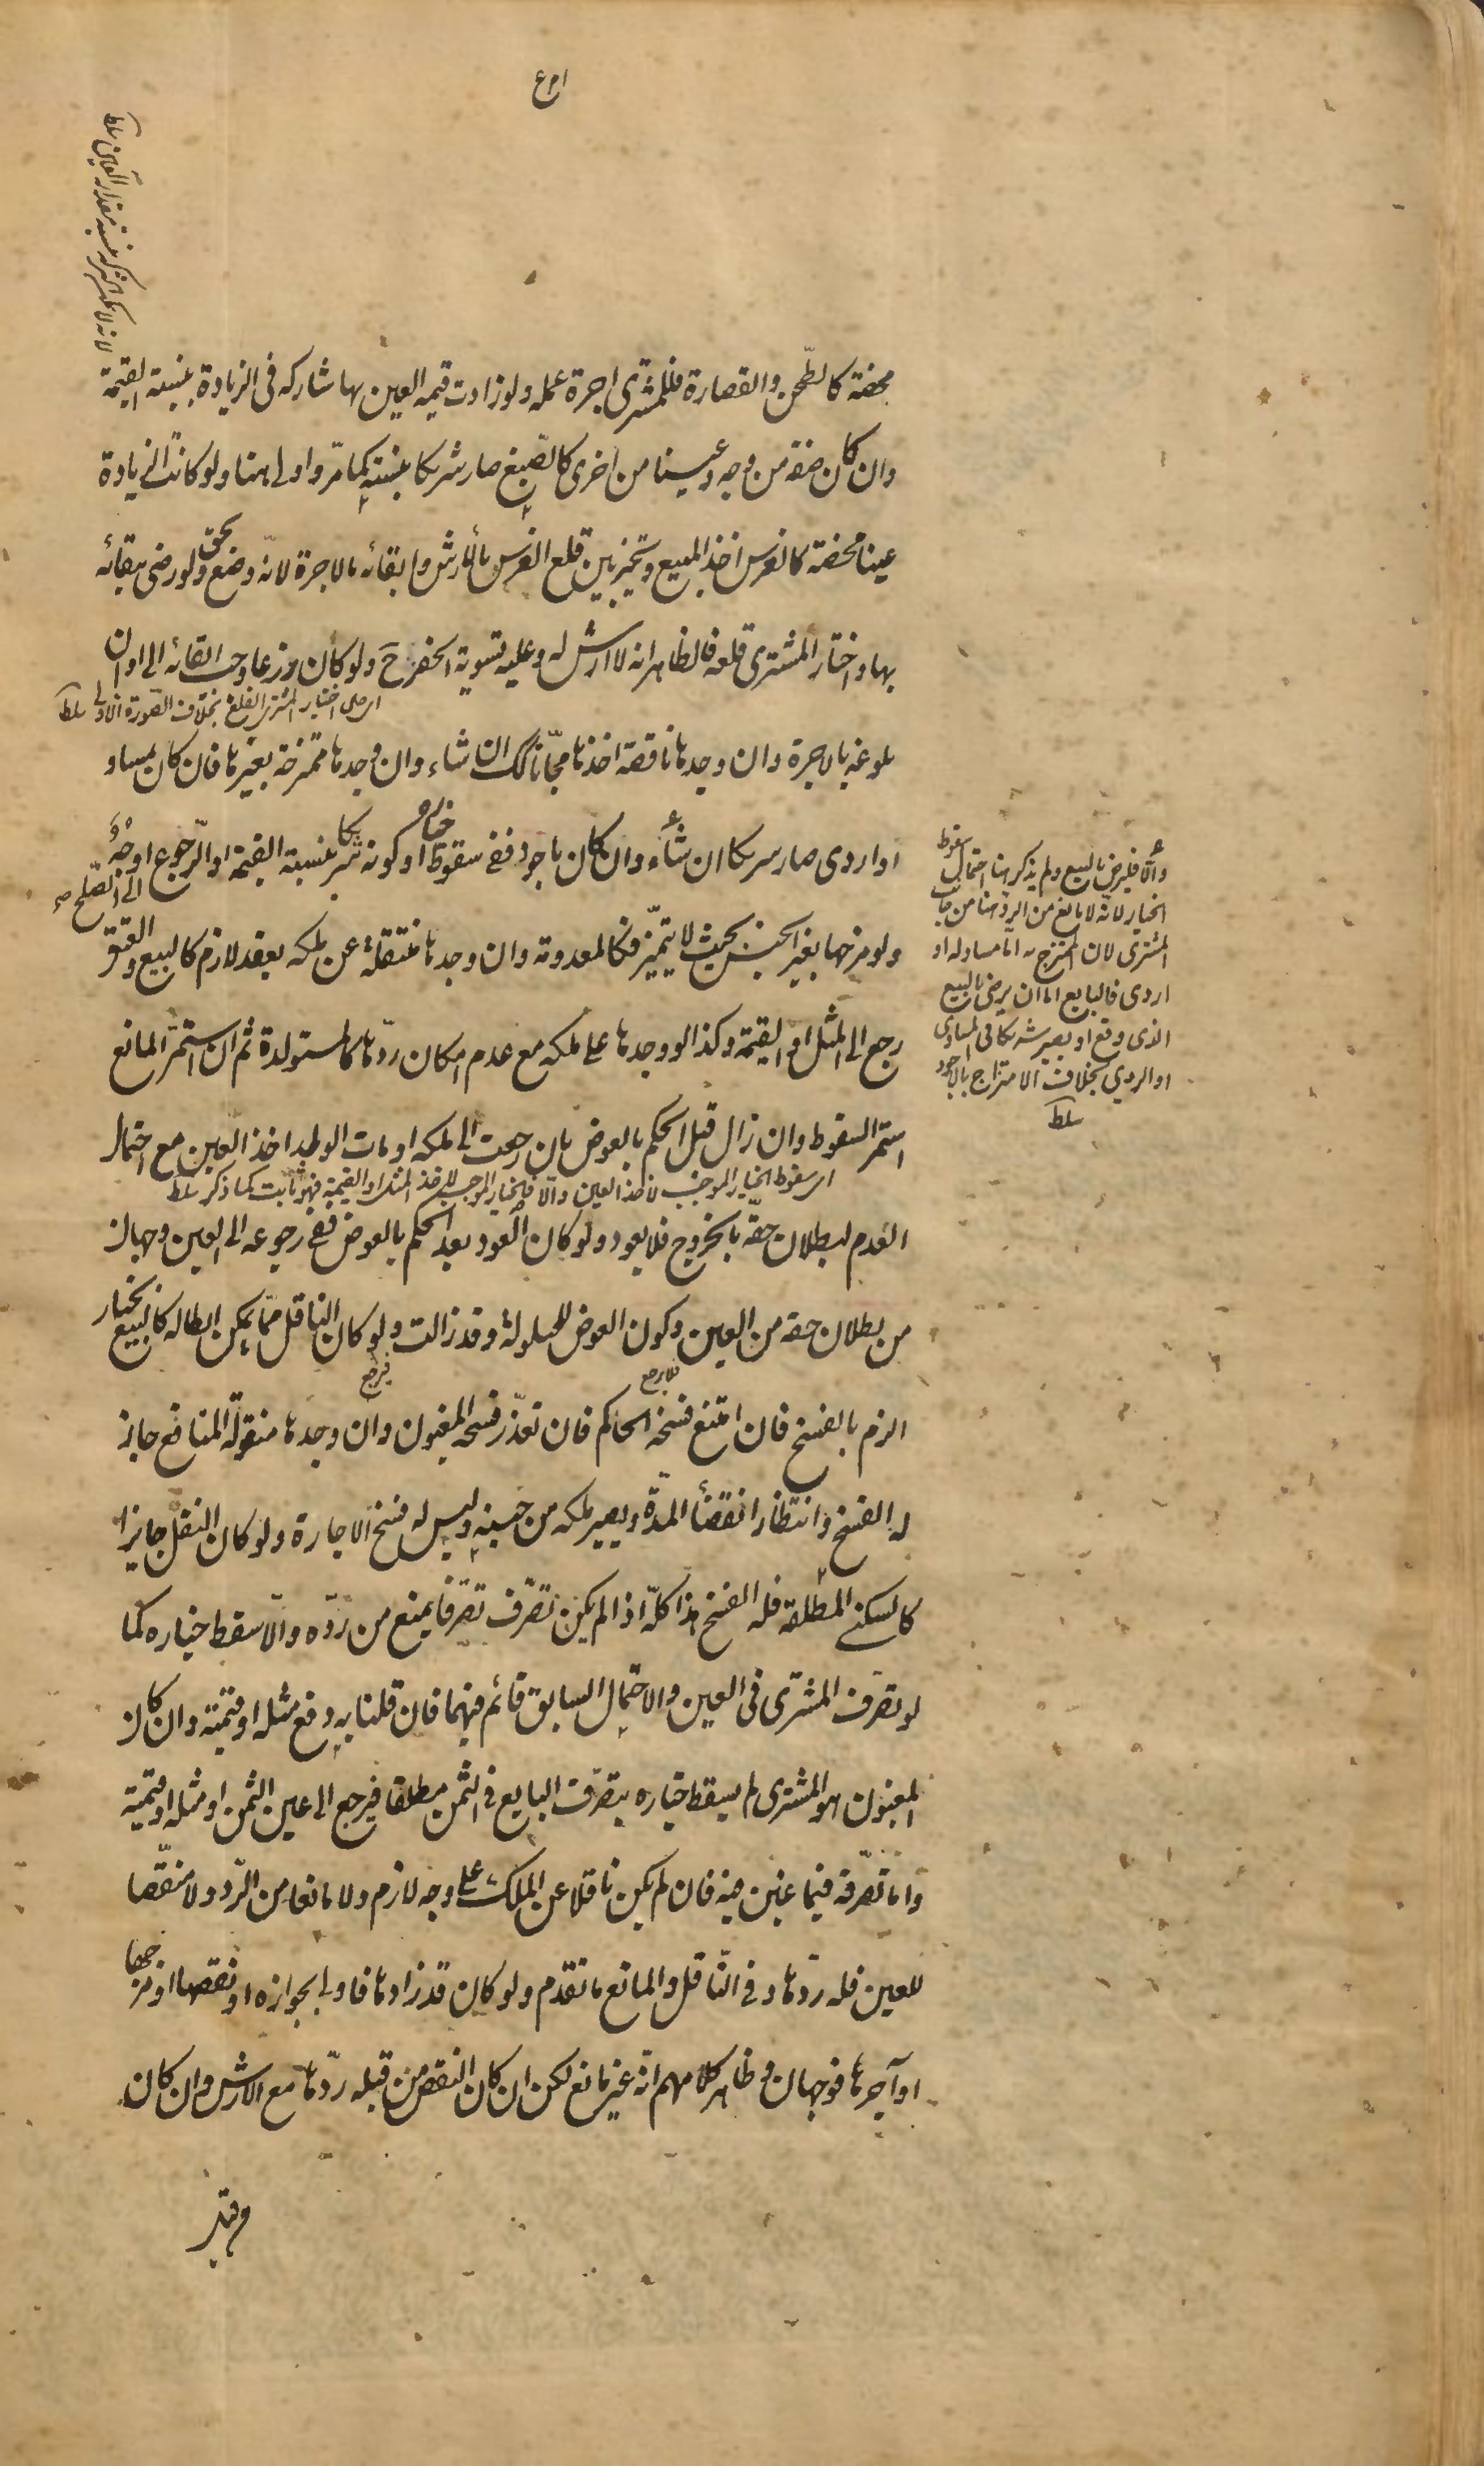 محضة كالطحن والقصارة فللمشتري اجرة عمله ولو زادت قيمة العين بها شاركه في الزيادة بنسبة القيمة
وان كان صفة من وجه وعينا من اخرى كالصّبغ صار شريكا بنسبته كما مرّ واولى هنا ولو كانت الزيادة
عينا محضة كالغرس اخذ المبيع وتخيّر بين قلع الغرس بالأرش وابقائه بالاجرة لانّه وضع بحق ولو رضي ببقائه
بها واختار المشتري قلعه فالظاهر انه لا ارش له وعليه تسوية الحفر ح ولو كان زرعا وجب ابقائه الى اوان
اى على اختيار المشترى القلع بخلاف الصّورة الاولى سلط
بلوغه بالاجرة وان وجدها ناقصة اخذها مجّانا كك ان شاء وان وجدها ممتزجة بغيرها فان كان بمساو
او اردى صار شريكا ان شاء وان كان باجود ففي سقوط خياره او كونه شريكا بنسبة القيمة او الرّجوع الى الصّلح اوجهٌ
ولو مزجها بغير الجنس بحيث لا يتميّز فكالمعدومة وان وجدها منتقلة عن ملكه بعقد لازم كالبيع والعتق
رجع الى المثل او القيمة وكذا لو وجدها على ملكه مع عدم امكان ردّها كالمستولدة ثم ان استمرّ المانع
استمر السقوط وان زال قبل الحكم بالعوض بان رجعت الى ملكه او مات الولد اخذ العين مع احتمال
اى سقوط الخيار الموجب لاخذ العين والّا فالخيار الموجب لاخذ المثل او القيمة فهو ثابت كما ذكر سلط
العدم لبطلان حقّه بالخروج فلا يعود ولو كان العود بعد الحكم بالعوض ففي رجوعه الى العين وجهان
من بطلان حقه من العين وكون العوض للحيلولة وقد زالت ولو كان الناقل ممّا يمكن ابطاله كالبيع بخيار
الزم بالفسخ فان امتنع فسخه الحاكم فان تعذّر فسخه المغبون وان وجدها منقولة المنافع جاز
له الفسخ وانتظار انقضاء المدّة ويصير ملكه من حينه وليس له فسخ الاجارة ولو كان النقل جايزا
كالسكنى المطلقة فله الفسخ هذا كلّه اذا لم يكن تصرّف تصرّفا يمنع من ردّه والّا سقط خياره كما
لو تصرف المشترى في العين والاحتمال السابق قائم فيهما فان قلنا به دفع مثله او قيمته وان كان
المغبون هو المشترى لم يسقط خياره بتصرّف البايع في الثمن مطلقا فيرجع الى عين الثمن او مثله او قيمته
وامّا تصرّفه فيما غبن فيه فان لم يكن ناقلا عن الملك على وجه لازم ولا مانعا من الرّد ولا منقّصا
للعين فله ردّها وفي النّاقل والمانع ما تقدّم ولو كان قد زادها فاولى بجوازه او نقصها او مزجها
او آجرها فوجهان وظاهر كلامهم انّه غير مانع لكن ان كان النقص من قبله ردّها مع الارش وان كان
والّا فليرض بالبيع ولم يذكر هنا احتمال سقوط
الخيار لانه لا مانع من الردّ هنا من جانب
المشترى لان الممتزج به امّا مساو له او
اردى فالبايع اما ان يرضى بالبيع
الذى وقع او يصير شريكا في المساوى
او الردي بخلاف الامتزاج بالاجود
سلط